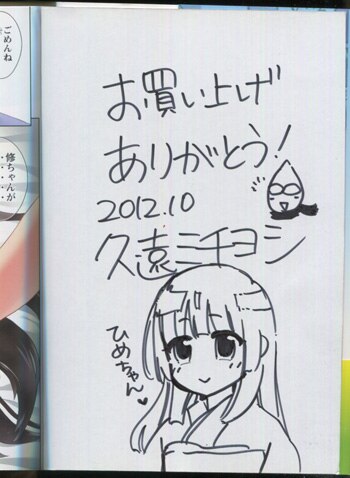 ごめんね
修ちゃんが
お買い上げ
ありがとう!
2012.10
久遠ミチヨシ
ひめちゃん♥